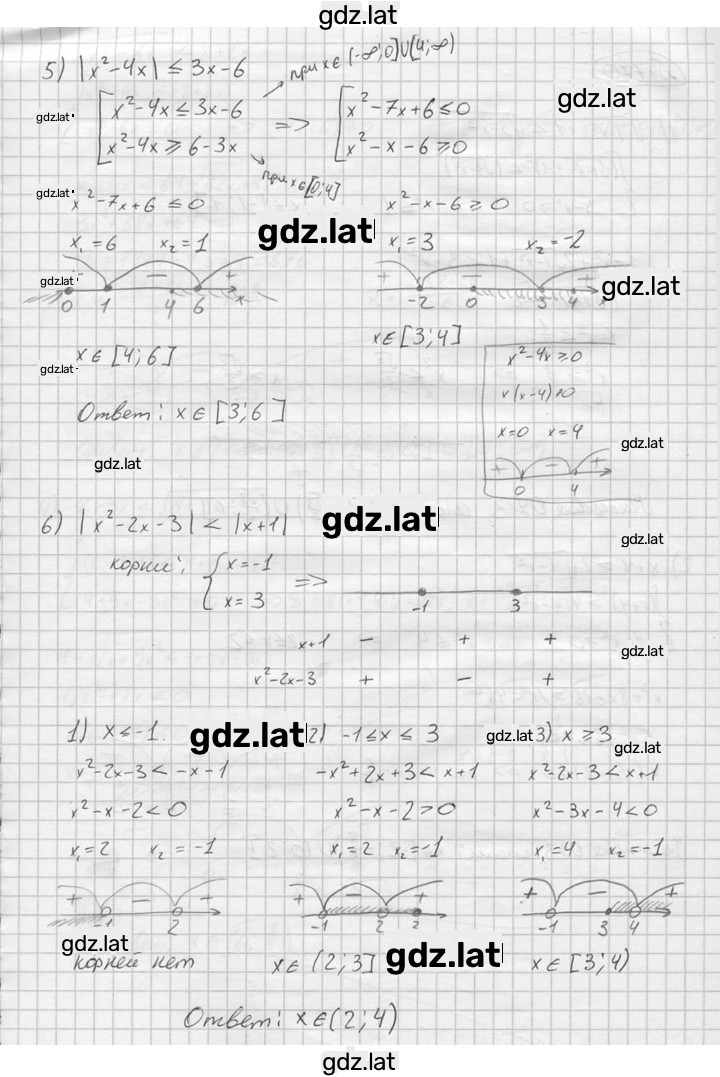 gdz.lat
5) |x²-4x| ≤ 3x-6
при x∈(-∞;0]∪[4;∞)
gdz.lat
gdz.lat
[ x²-4x ≤ 3x-6
x²-4x ⩾ 6-3x
=> [ x²-7x+6 ≤ 0
x²-x-6 ⩾ 0
при x∈[0;4]
gdz.lat
x²-7x+6 ≤ 0
x²-x-6 ⩾ 0
gdz.lat
x₁=6 x₂=1
x₁=3 x₂=-2
gdz.lat
gdz.lat
- +
0 1 4 6 x
+ - +
-2 0 3 4 x
x∈[4;6]
x∈[3;4]
gdz.lat
x²-4x⩾0
x(x-4)⩾0
Ответ: x∈[3;6]
x=0 x=4
gdz.lat
gdz.lat
+ - +
0 4
6) |x²-2x-3| < |x+1|
gdz.lat
gdz.lat
корни: { x=-1
x=3
=>
-1 3
x+1 - + +
gdz.lat
x²-2x-3 + - +
1) x≤-1.
gdz.lat
2) -1≤x≤3
gdz.lat
3) x⩾3
gdz.lat
x²-2x-3<-x-1
-x²+2x+3<x+1
x²-2x-3<x+1
x²-x-2<0
x²-x-2>0
x²-3x-4<0
x₁=2 x₂=-1
x₁=2 x₂=-1
x₁=4 x₂=-1
+ - +
-1 2
+ - +
-1 2 3
+ - +
-1 3 4
gdz.lat
корней нет
x∈(2;3]
gdz.lat
x∈[3;4)
Ответ: x∈(2;4)
gdz.lat